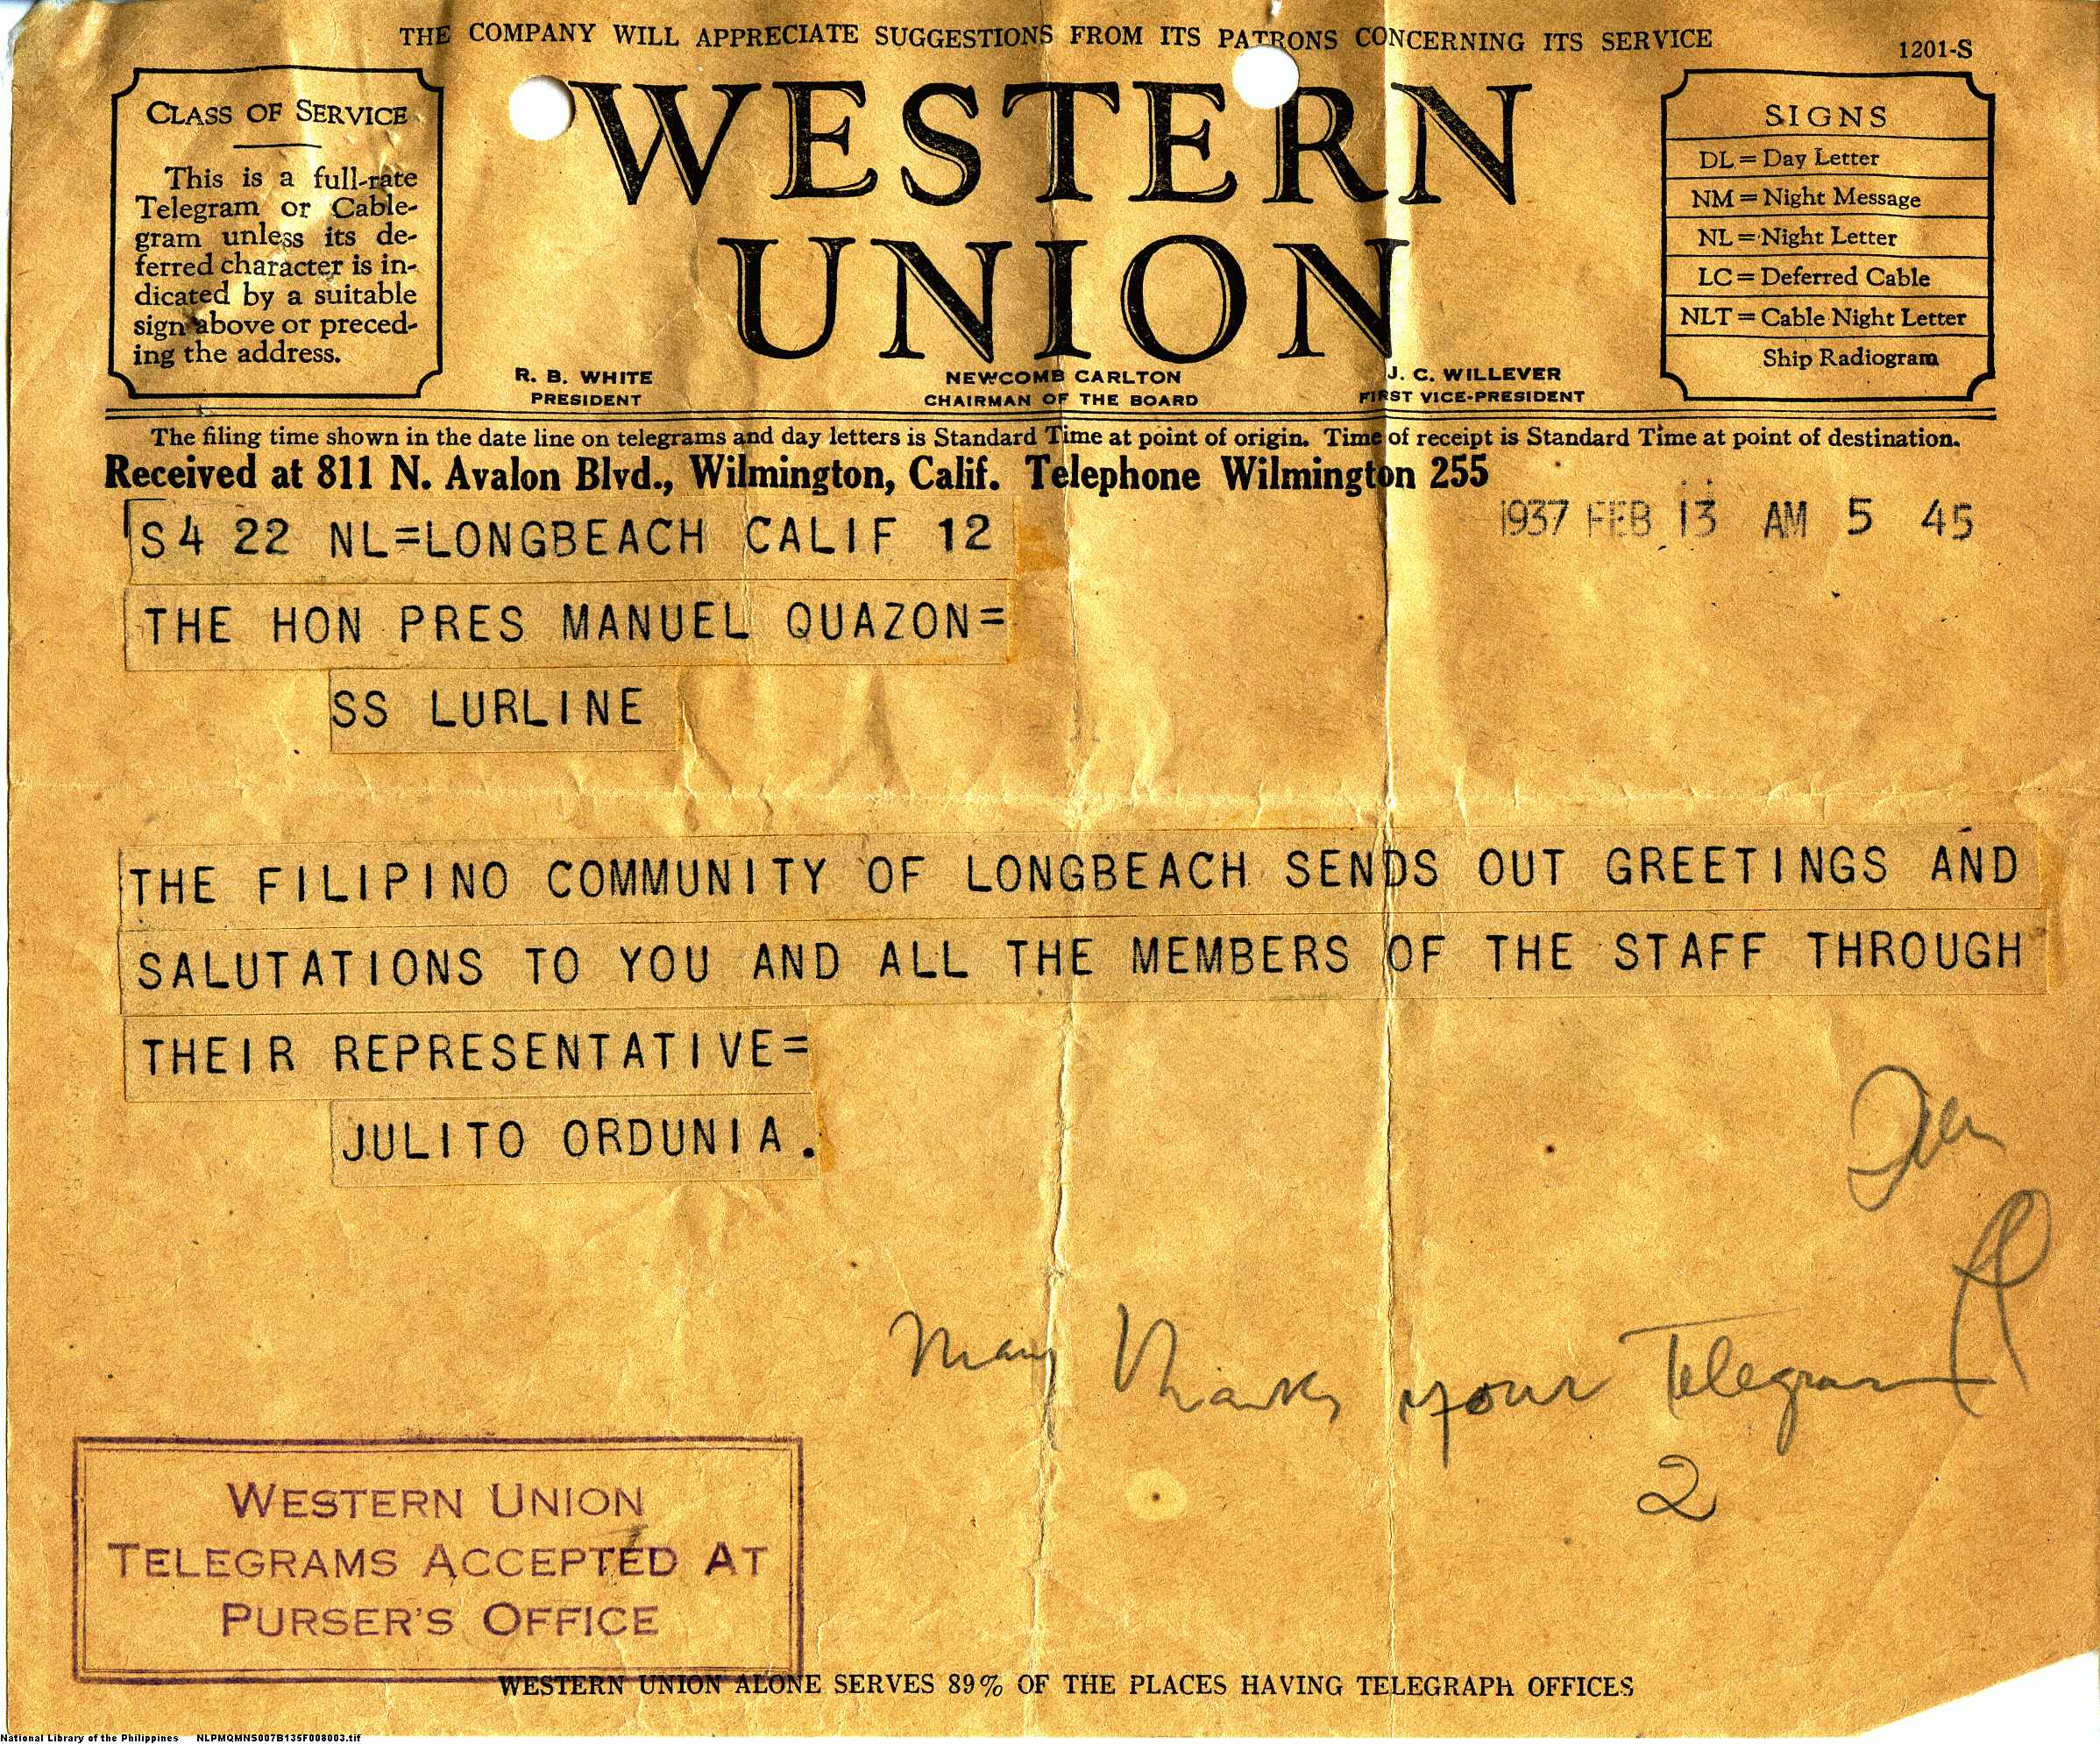 THE COMPANY WILL APPRECIATE SUGGESTIONS FROM ITS PATRONS CONCERNING ITS SERVICE
1201-S
CLASS OF SERVICE
This is a full-rate
Telegram or Cable-
gram unless its de-
ferred character is in-
dicated by a suitable
sign above or preced-
ing the address.
WESTERN
UNION
R. B. WHITE
PRESIDENT
NEWCOMB CARLTON
CHAIRMAN OF THE BOARD
J. C. WILLEVER
FIRST VICE-PRESIDENT
SIGNS
DL = Day Letter
NM = Night Message
NL = Night Letter
LC = Deferred Cable
NLT = Cable Night Letter
Ship Radiogram
The filing time shown in the date line on telegrams and day letters is Standard Time at point of origin. Time of receipt is Standard Time at point of destination.
Received at 811 N. Avalon Blvd., Wilmington, Calif. Telephone Wilmington 255
1937 FEB 13 AM 5 45
S4 22 NL=LONGBEACH CALIF 12
THE HON PRES MANUEL QUAZON=
SS LURLINE
THE FILIPINO COMMUNITY OF LONGBEACH SENDS OUT GREETINGS AND
SALUTATIONS TO YOU AND ALL THE MEMBERS OF THE STAFF THROUGH
THEIR REPRESENTATIVE=
JULITO ORDUNIA.
Many thanks your Telegram
2
WESTERN UNION
TELEGRAMS ACCEPTED AT
PURSER'S OFFICE
WESTERN UNION ALONE SERVES 89% OF THE PLACES HAVING TELEGRAPH OFFICES
National Library of the Philippines NLPMQMNS007B135F008003.tif